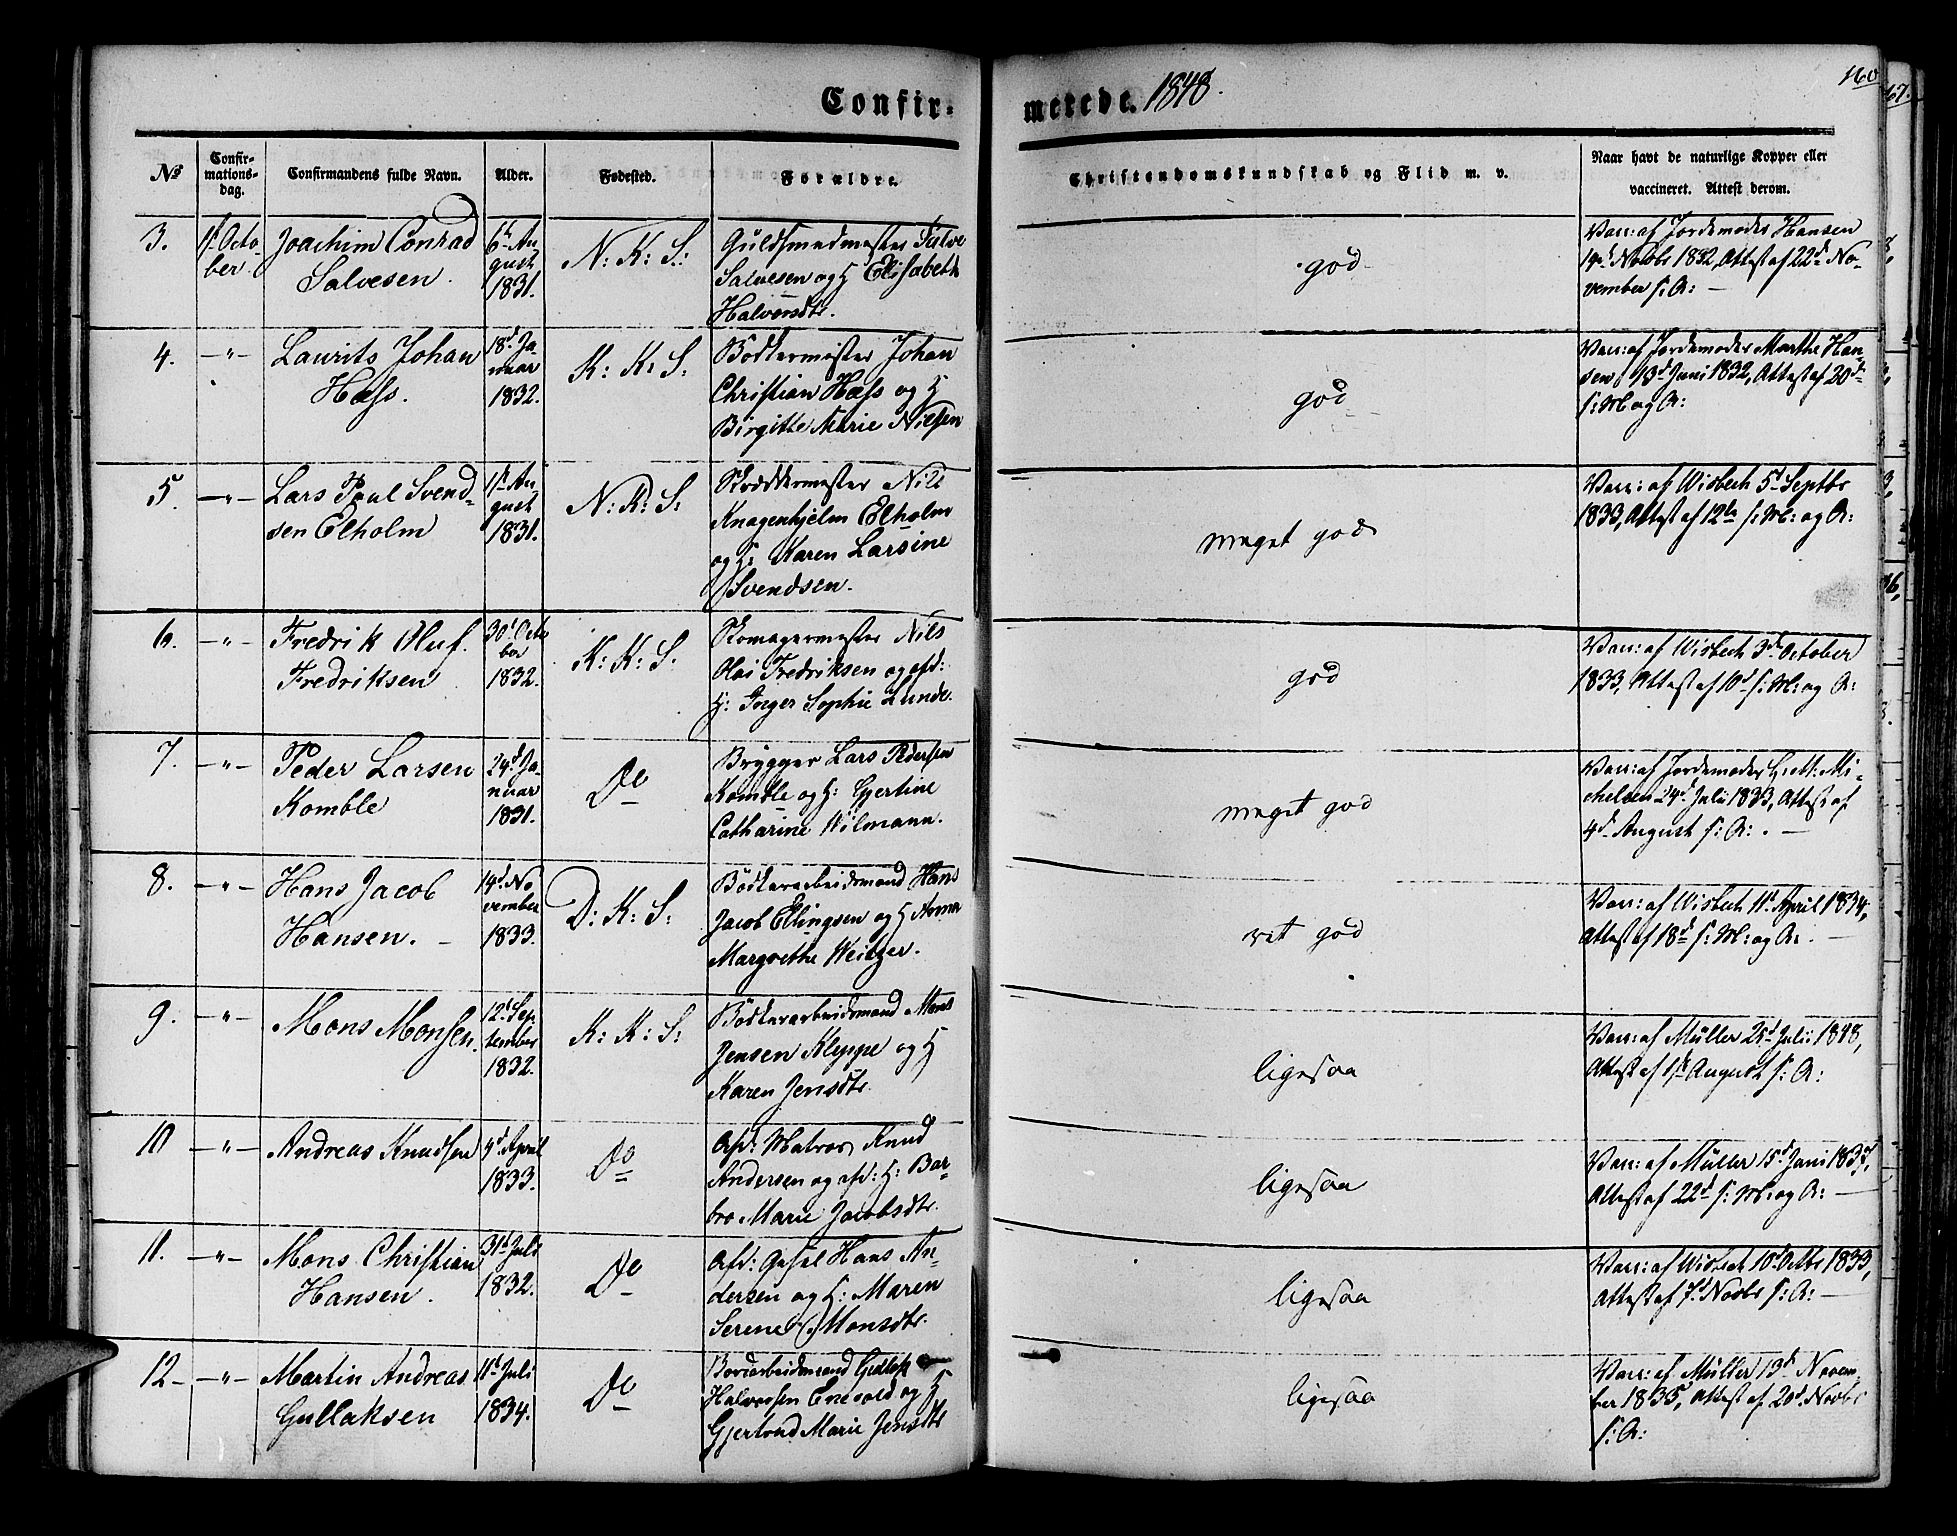 Confir-
merede. 1848.
160
67.
No
Confir-
mations-
dag.
Confirmandens fulde Navn.
Alder.
Fødested.
Forældre.
Christendomskundskab og Flid m. v.
Naar havt de naturlige Kopper eller
vaccineret. Attest derom.
3.
1ste Octo-
ber
Joachim Conrad
Salvesen.
6te Au-
gust
1831.
N: K: S:
Guldsmedmester
Salvesen og H Elisabeth
Halvorsdtr.
god
Vacc: af Jordemoder Hansen
Novbr 1832, Attest af 22de No-
vember s: A:
4.
-"-
Laurits Johan
Hass.
18d Ja-
nuar
1832.
K: K: S:
Bødkermester Johan
Christian Hass og H
Birgitte Marie Nilsen
god
Vacc: af Jordemoder Marthe Han-
sen 13d Juni 1832, Attest af 20de
s: M og A:
5.
-"-
Lars Paul Svend-
sen Elholm
1ste Au-
gust
1831.
N: K: S:
Skræddermester Nils
Knagenhjelm Elholm
og H: Karen Larsine
Svendsen.
meget god
Vacc: af Wisbech 5d Septbr
1833, Attest af 12te s: M: og A:
6.
-"-
Fredrik Oluf
Fredriksen
30d Octo
ber
1832.
K: K: S:
Skomagermester Nils
Olai Fredriksen og afd:
H: Inger Sophie Lunde.
god
Vacc: af Wisbech 3de October
1833, Attest af 10d s: M: og A:
7.
-"-
Peder Larsen
Komble
24d Ja-
nuar
1831.
Do
Brygger Lars Pedersen
Komble og H: Gjertine
Catharine Wilmann.
meget god
Vacc: af Jordemoder Mi-
chelsen 24d Juli 1833, Attest af
4d August s: A:
8.
-"-
Hans Jacob
Hansen.
14d No
vember
1833.
D: K: S:
Bødkerarbeidsmand Hans
Jacob Ellingsen og H Anna
Margrethe Weitzer.
ret god
Vacc: af Wisbech 11d April 1834,
Attest af 18d s: M: og A:
9.
-"-
Mons Monsen.
12d Sep
tember
1832.
K: K: S:
Bødkerarbeidsmand Mons
Jensen Kleppe og H
Karen Jensdtr.
ligesaa
Vacc: af Müller 25d Juli 1848,
Attest af 1ste August s: A:
10
-"-
Andreas Knudsen
4d April
1833.
Do
Afd: Matros Knud
Andersen og afd: H: Bar-
bro Marie Jacobsdtr.
ligesaa
Vacc: af Müller 15d Juni 1837,
Attest af 22d s: M: og A:
11.
-"-
Mons Christian
Hansen.
31d Juli
1832.
Do
Afd: Hans An-
dersen og H: Maren
Serene Monsdtr.
ligesaa
Vacc: af Wisbech 10d Octbr 1833,
Attest af 7d Novbr s: A:
12
-"-
Martin Andreas
Gullaksen
11d Juli
1834.
Do
Gullak
Halvorsen Enevold og H
Gjertrud Marie Jensdtr
ligesaa
Vacc: af Müller 13d Novem-
ber 1835, Attest af 20d Novbr
s: A: